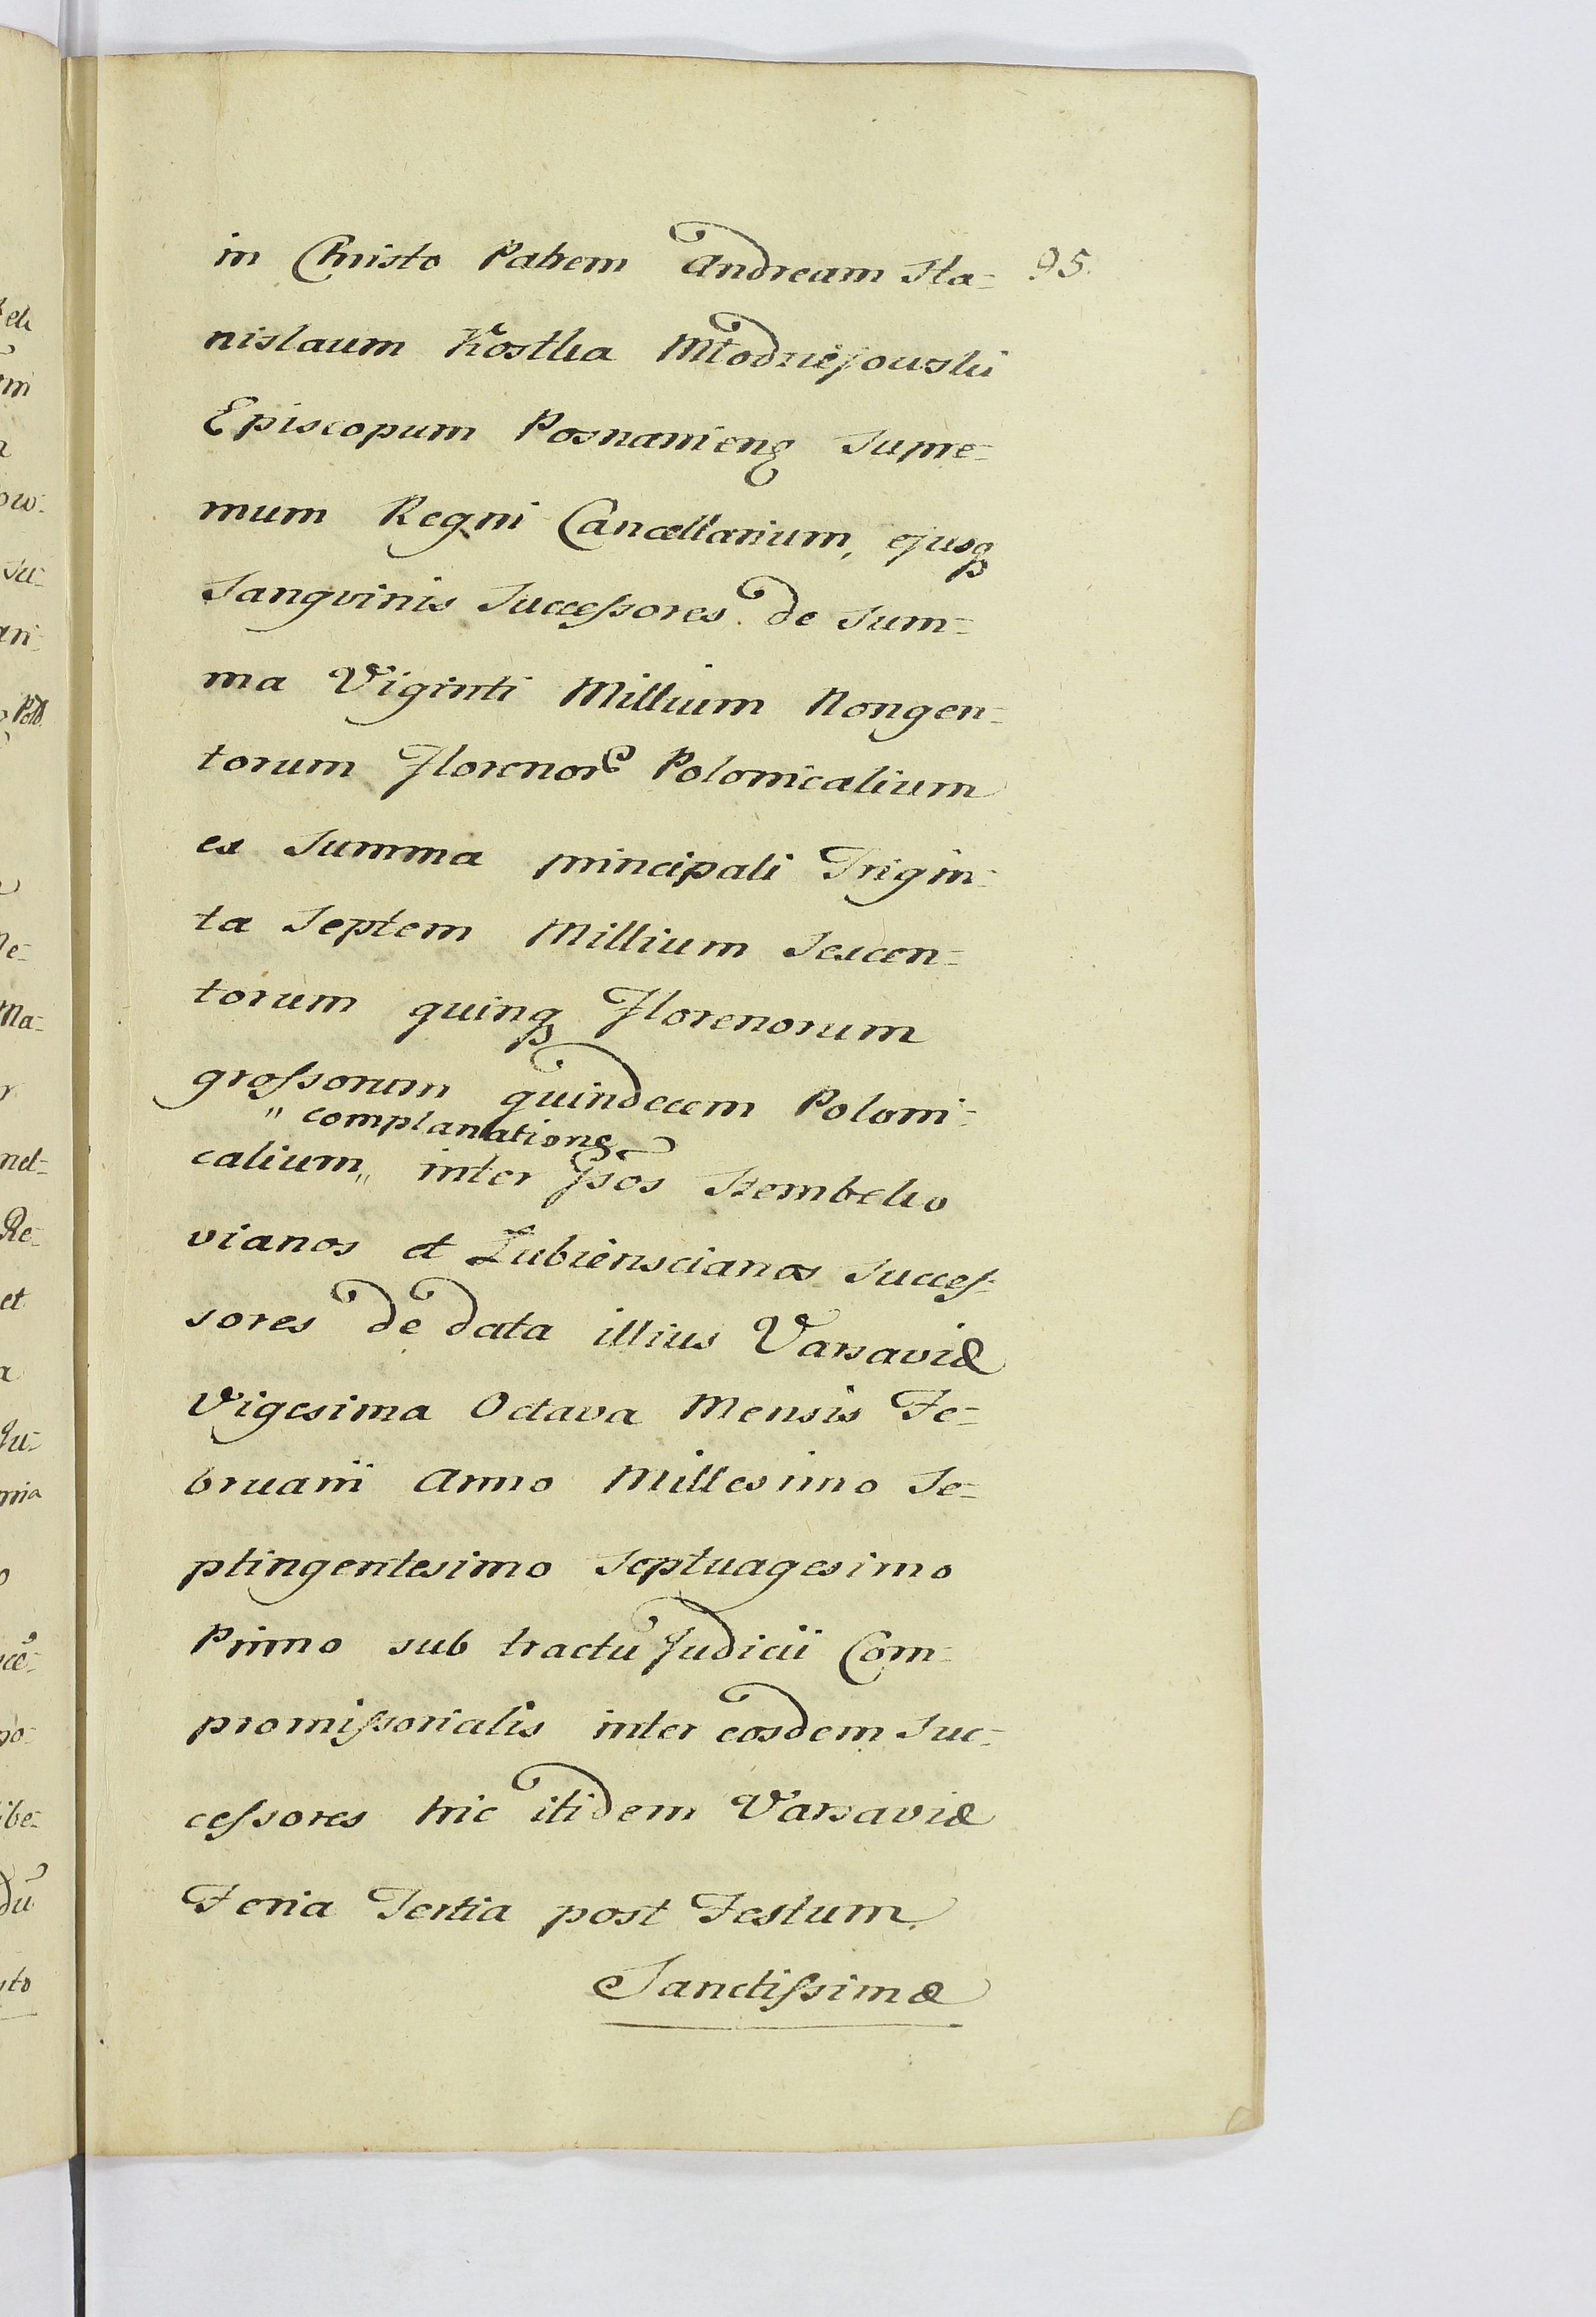 in Christo Patrem Andream Sta= 95.
nislaum Kostka Młodziejowski
Episcopum Posnanieng Supre=
mum Regni Cancellarium, ejusq
Sangvinis Successores de Sum=
ma Viginti Millium Nongen=
torum Florenor Polonicalium
ex Summa principali Trigin=
ta Septem Millium Sexcen=
torum quinq Florenorum
grossorum quindecem Poloni=
" complanatione
calium,, inter Ipsos Szembeko
vianos et Łubienscianos Succes=
sores de data illius Varsaviæ
Vigesima Octava Mensis Fe=
bruarii Anno Millesimo Se=
ptingentesimo Septuagesimo
Primo sub tractu Judicii Com=
promissorialis inter eosdem Suc=
cessores hic itidem Varsaviæ
Feria Tertia post Festum
Sanctissimæ